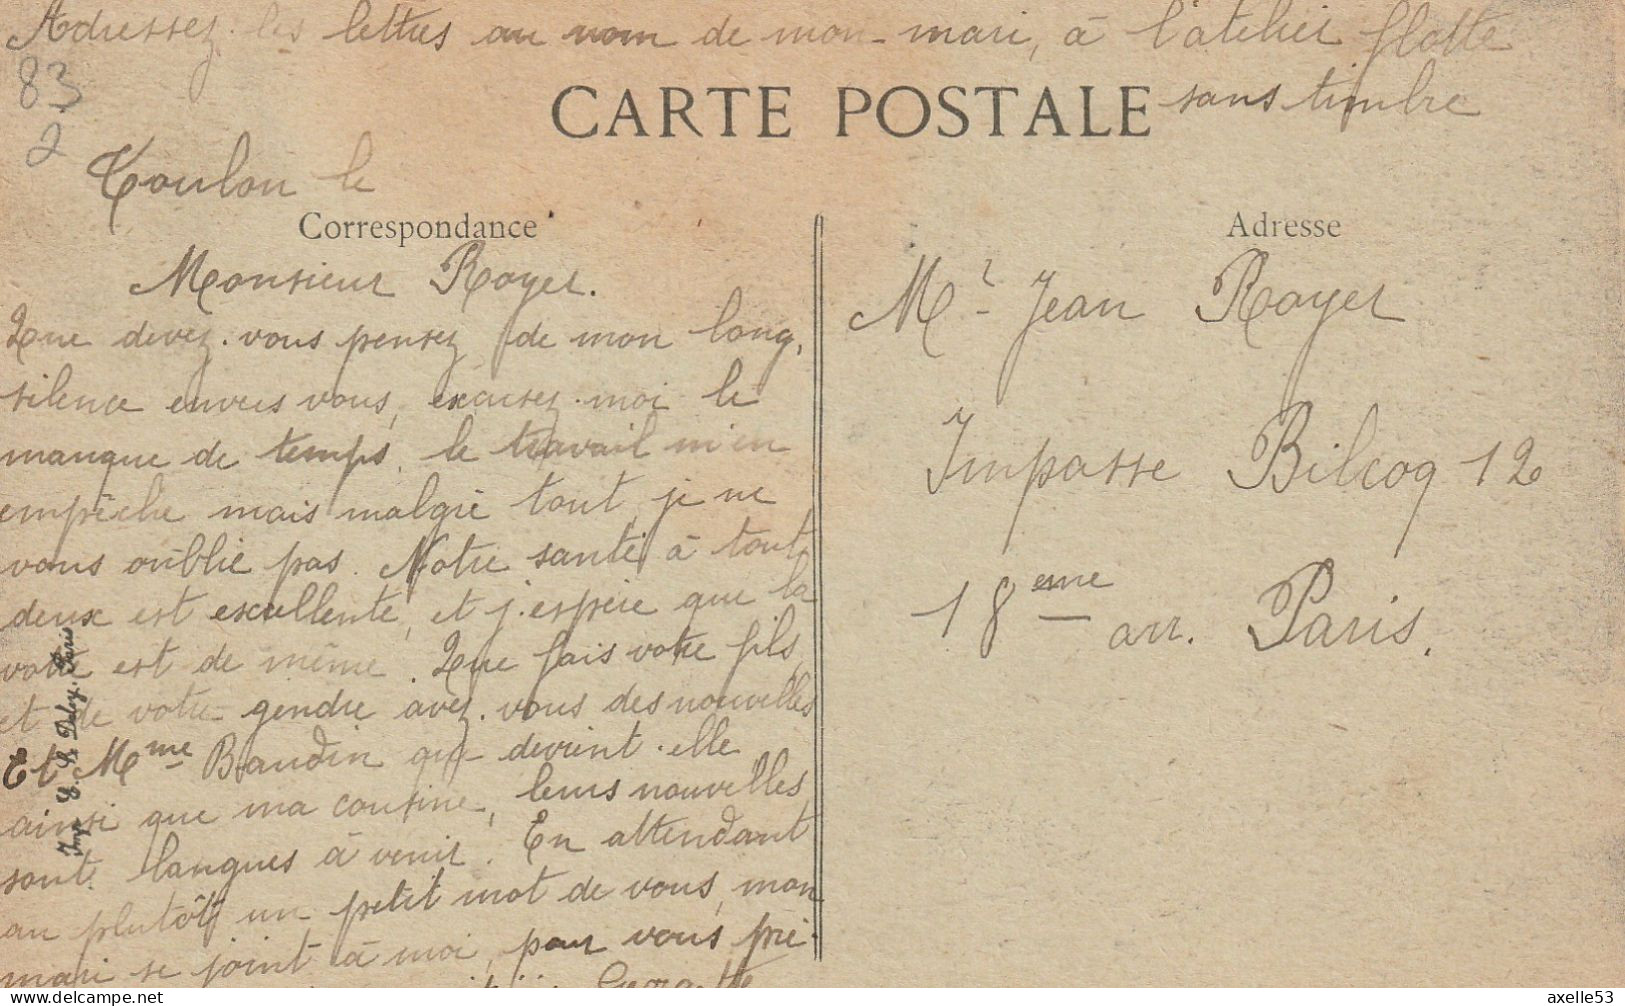 Adressez. les lettres au nom de mon-mari, à l'atelier flotte
sans timbre
83
2
CARTE POSTALE
Toulon le
Correspondance
Monsieur Royer.
Que devez.vous pensez de mon long,
silence envers vous, excusez.moi le
manque de temps. le travail m'en
empêche mais malgré tout, je ne
vous oublie pas. Notre santé à tout
deux est excellente, et j.espère que la
votre est de même. Que fais votre fils,
et de votre gendre avez.vous des nouvelles
Et Mme Baudin que devient.elle,
ainsi que ma cousine, leurs nouvelles
sont langues à venir. En attendant
au plutôt un petit mot de vous, mon
mari se joint à moi, pour vous pré-
Georgette
Adresse
Mr- Jean Royer
Impasse Bilcoq 12
18eme arr. Paris.
Imp. E. Le Deley, Paris
delcampe.net
axelle53